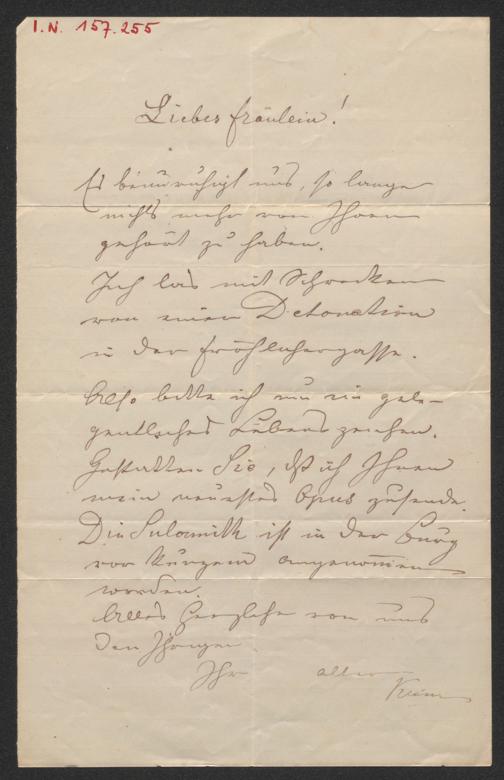 I.N. 157.255
Liebes Fräulein!
Es beunruhigt uns, so lange
nichts mehr von Ihnen
gehört zu haben.
Ich las mit Schrecken
von einer Detonation
in der Fröhlichergasse.
Also bitte ich um ein gele-
gentliches Lebenszeichen.
Gestatten Sie, dß ich Ihnen
mein neuestes Opus zusende.
Die Sulamith ist in der Burg
vor Kurzem angenommen
worden.
Alles Herzliche von uns
den Ihrigen.
Ihr alter